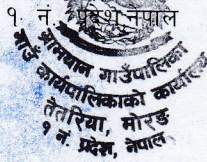 १ नं. प्रदेश नेपाल
ग्रामथान गाउँपालिका
गाउँ कार्यपालिकाको कार्यालय
तेतरिया, मोरङ
१ नं. प्रदेश, नेपाल